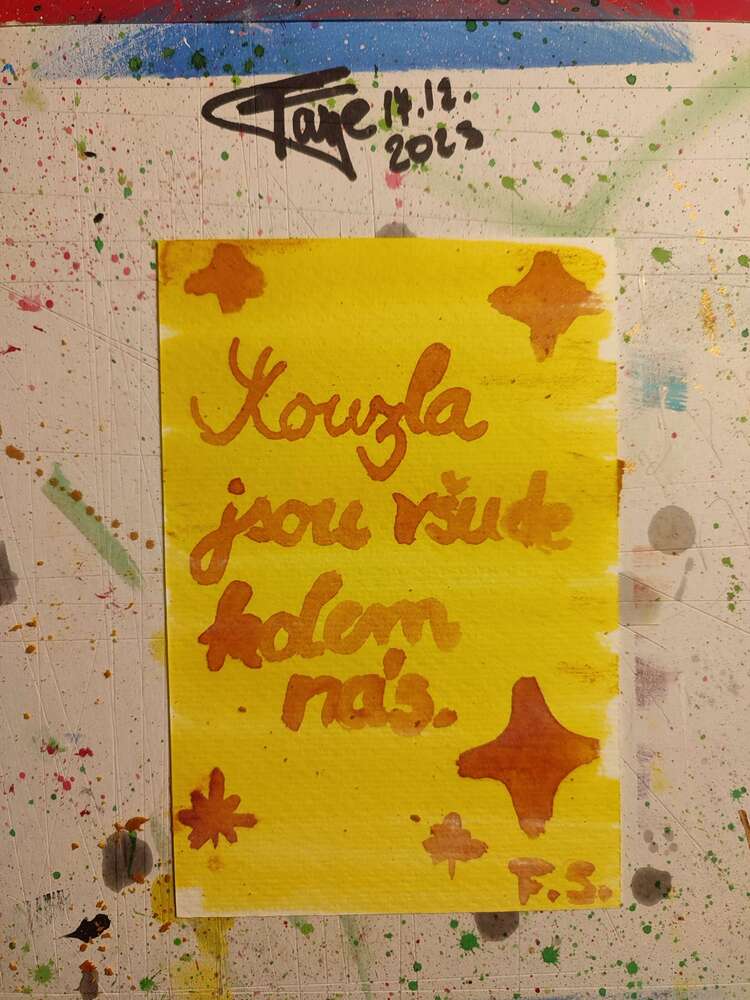 Faye 14.12.
2023
Kouzla
jsou všude
kolem
nás.
F.S.